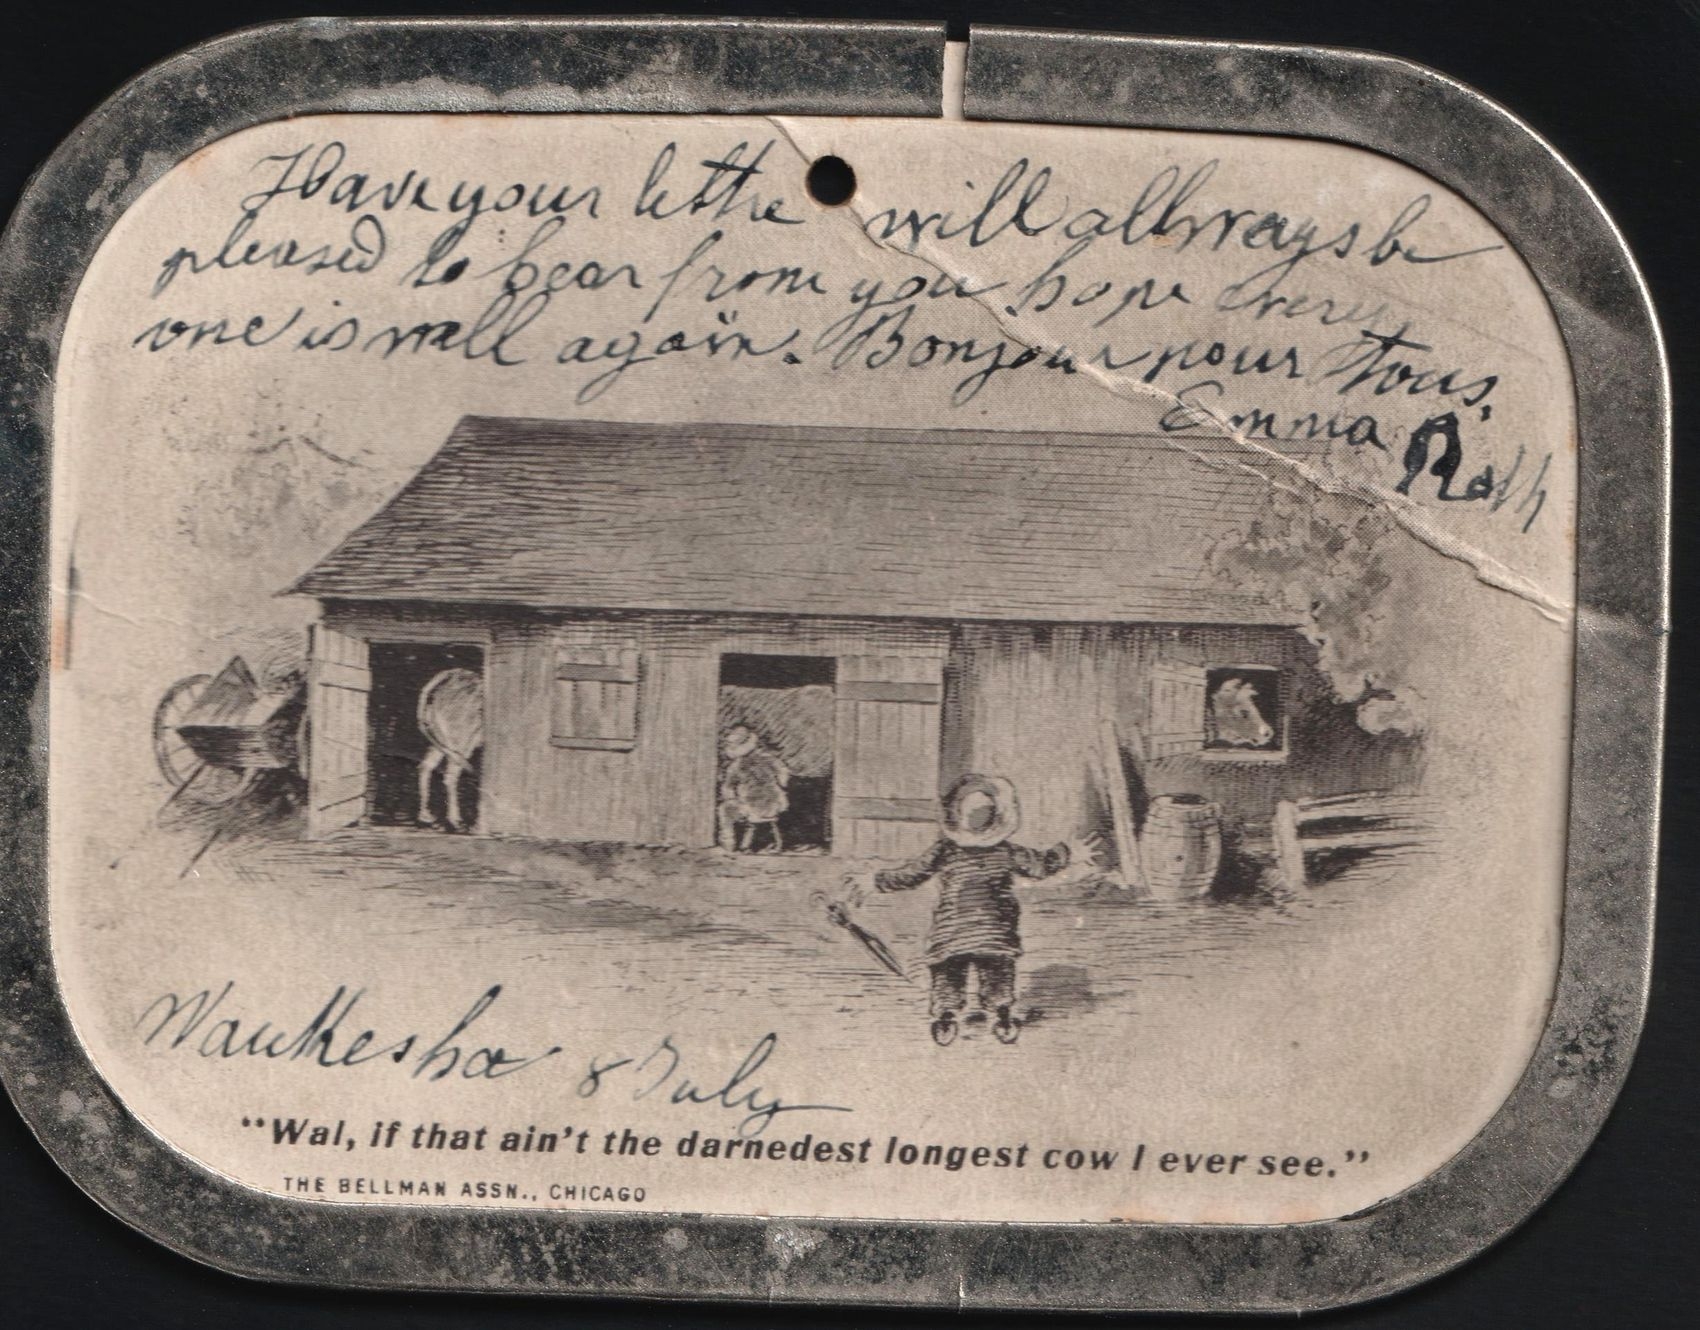 Have your lettre will allways be
pleased to hear from you hope every
one is well again. Bonjour pour Tous.
Emma Roth
Waukesha 8 July
"Wal, if that ain't the darnedest longest cow I ever see."
THE BELLMAN ASSN., CHICAGO